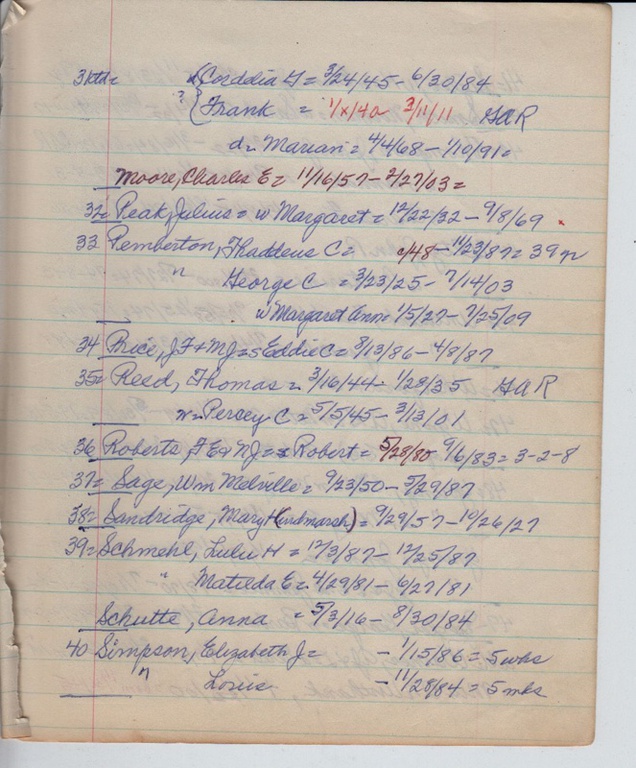 31 w Corddia G = 3/24/45 - 6/30/84
? { Frank = 1/x/40 3/11/11 GAR
d = Marian = 4/4/68 - 1/10/91 =
Moore, Charles E = 11/16/57 - 2/27/03 =
32 = Peak, Julius = w Margaret = 12/22/32 - 9/8/69
33 Pemberton, Thaddeus C = c/48 - 11/23/87 = 39 y
" George C = 3/23/25 - 7/14/03
w Margaret Ann = 1/5/27 - 7/25/09
34 Price, J F + M J = s Eddie C = 8/13/86 - 4/8/87
35 = Reed, Thomas = 3/16/44 - 1/28/35 GAR
w = Percey C = 5/5/45 - 3/13/01
36 Roberts, F E & N J = s Robert = 5/28/80 9/6/83 = 3-2-8
37 = Sage, Wm Melville = 9/23/50 - 5/29/87
38 = Sandridge, Mary H (indmarsh) = 9/29/57 - 10/26/27
39 = Schmehl, Lulu H = 12/3/87 - 12/25/87
" Matilda E = 4/29/81 - 6/27/81
Schutte, Anna = 5/3/16 - 8/30/84
40 Simpson, Elizabeth J = - 1/15/86 = 5 wks
" Louis - 11/28/84 = 5 mks